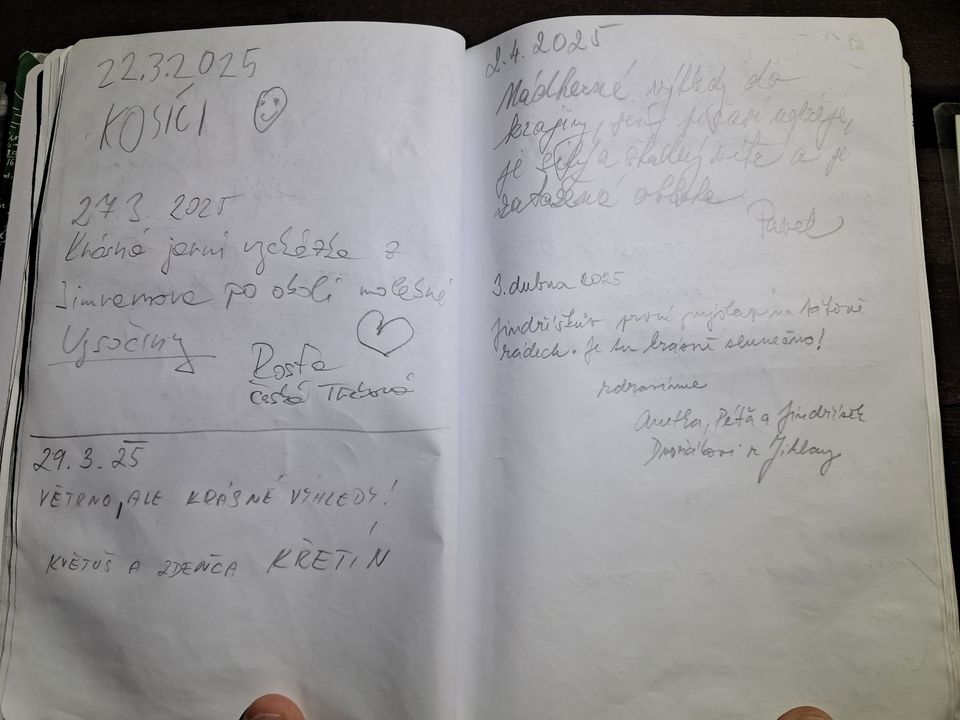 22.3.2025
KOSÍČI
27.3. 2025
Krásná jarní vycházka z
Jimramova po okolí malebné
Vysočiny
Rosťa
Česká Třebová
29.3.25
VĚTRNO, ALE KRÁSNÉ VÝHLEDY!
KVĚTUŠ A ZDENČA KŘETÍN
2.4.2025
Nádherné výhledy do
krajiny, jen počasí
je silný a studený vítr a je
zatažená obloha
Pavel
3. dubna 2025
Jindříškův první výšlap na tátově
zádech. Je tu krásně slunečno!
zdravíme
Anetka, Péťa a Jindříšek
Dvořákovi z Jihlavy